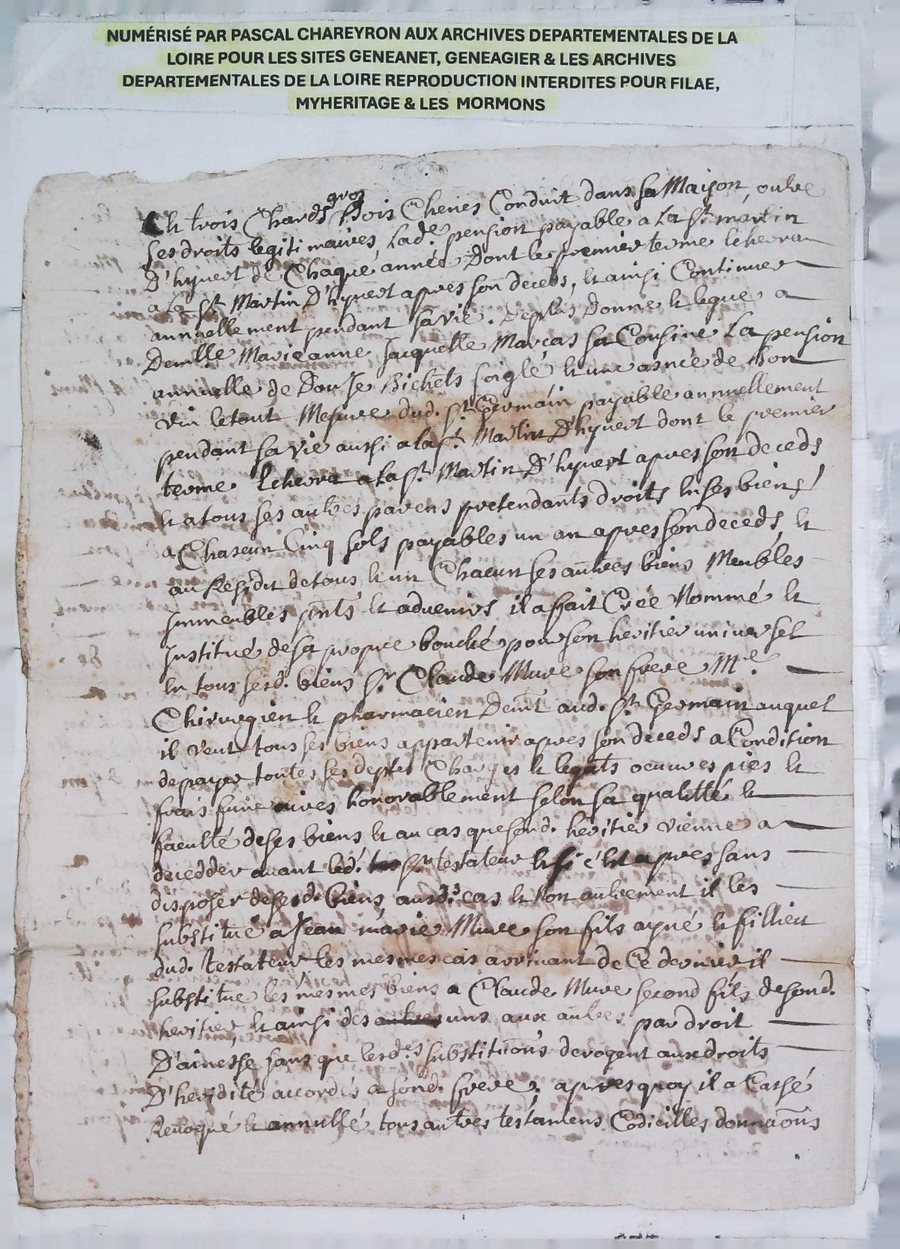 NUMÉRISÉ PAR PASCAL CHAREYRON AUX ARCHIVES DEPARTEMENTALES DE LA
LOIRE POUR LES SITES GENEANET, GENEAGIER & LES ARCHIVES
DEPARTEMENTALES DE LA LOIRE REPRODUCTION INTERDITES POUR FILAE,
MYHERITAGE & LES MORMONS
Et trois Chards gros Bois Chenes Conduit dans sa Maison, outre
ses droits legitimaires, lade. pension payable a La st. martin
D'hyvert de Chaque année Dont le premier terme Echerra
a la st. Martin D'hyvert apres son deceds, et ainsi Continuer
annuellement pendant sa vie. Deplus donne et legue a
Demlle Marieanne Jacquette Marcas sa Cousine La pension
annuelle de Douze Bichets soigle et une asnée de bon
vin le tout Mesure dud. st. Germain payable annuellement
pendant sa vie aussi a la st. Martin D'hyvert dont le premier
terme Echerra a la st. Martin D'hyvert apres son deceds
et a tous ses autres parens pretendants droits En ses biens
a Chascun Cinq sols payables un an apres son deceds, et
au Residu de tous et un Chacun ses autres biens Meubles
immeubles pnts et advenirs il a fait Crée Nommé et
Institué de sa propre bouche pour son heritier universel
En tous sesd. biens sr. Claude Mure son frere Me.
Chirurgien et pharmacien Demt. aud. st. Germain auquel
il veut tous ses biens appartenir apres son deceds a Condition
de payer toutes ses deptes Charges et legats oeuvres pies et
frais funeraires honorablement selon sa qualitté et
faculté de ses biens et au cas que sond. heritier vienne a
decedder avant led. sr. testateur apres sans
disposer de sesd. biens, audt. cas et non autrement il les
substitue a Jean marie Mure son fils ayné et fillieu
dud. Testateur les mesmes cas arrivant de Ce dernier il
substitue les mesmes biens a Claude Mure second fils de sond.
heritier et ainsi des uns aux autres par droit
D'ainesse sans que lesdes substitutions derogent aux droits
D'heredité accordés a sond. frere, apres quoy il a Cassé
Revoqué et annullé tous autres testamens Codicilles donnaons